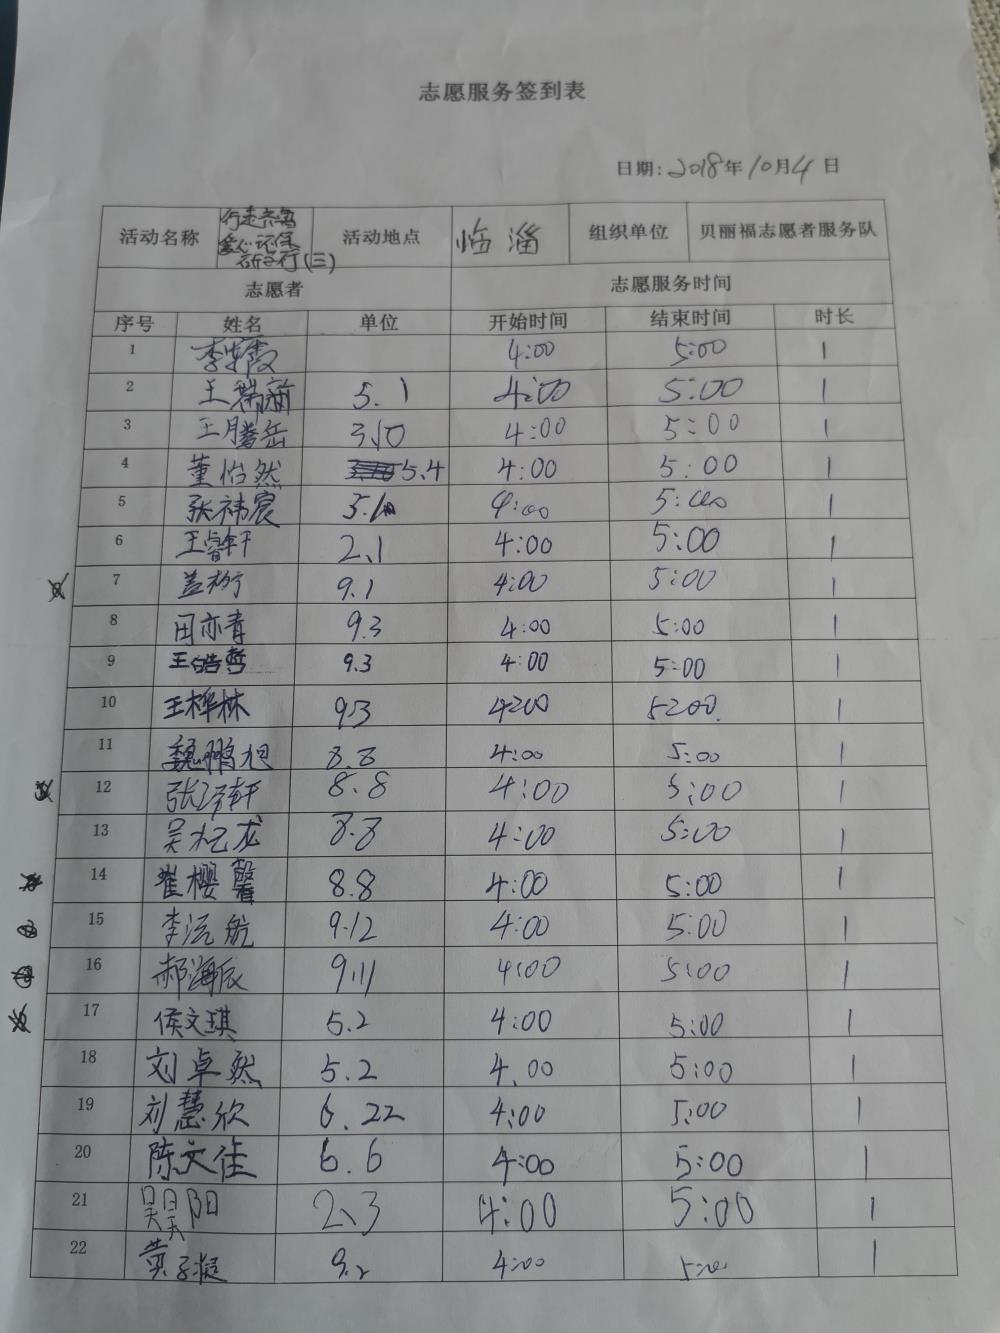 志愿服务签到表
日期: 2018年10月4日
活动名称 行走齐鲁 爱心记保 行(三) 活动地点 临淄 组织单位 贝丽福志愿者服务队
志愿者 志愿服务时间
序号 姓名 单位 开始时间 结束时间 时长
1 李 霞 4:00 5:00 1
2 王 5.1 4:00 5:00 1
3 王腾岳 3.10 4:00 5:00 1
4 董怡然 5.4 4:00 5:00 1
5 张祎宸 4:00 5:00 1
6 王睿轩 2.1 4:00 5:00 1
7 盖 9.1 4:00 5:00 1
8 田亦青 9.3 4:00 5:00 1
9 王皓哲 9.3 4:00 5:00 1
10 王桦林 9.3 4:00 5:00 1
11 魏鹏旭 8.8 4:00 5:00 1
12 张 轩 8.8 4:00 5:00 1
13 吴 龙 8.8 4:00 5:00 1
14 崔樱馨 8.8 4:00 5:00 1
15 李沅航 9.12 4:00 5:00 1
16 郝海辰 9.11 4:00 5:00 1
17 侯文琪 5.2 4:00 5:00 1
18 刘卓然 5.2 4.00 5:00 1
19 刘慧欣 6.22 4:00 5:00 1
20 陈文佳 6.6 4:00 5:00 1
21 昊阳 2、3 4:00 5:00 1
22 黄子凝 9.2 4:00 5:00 1